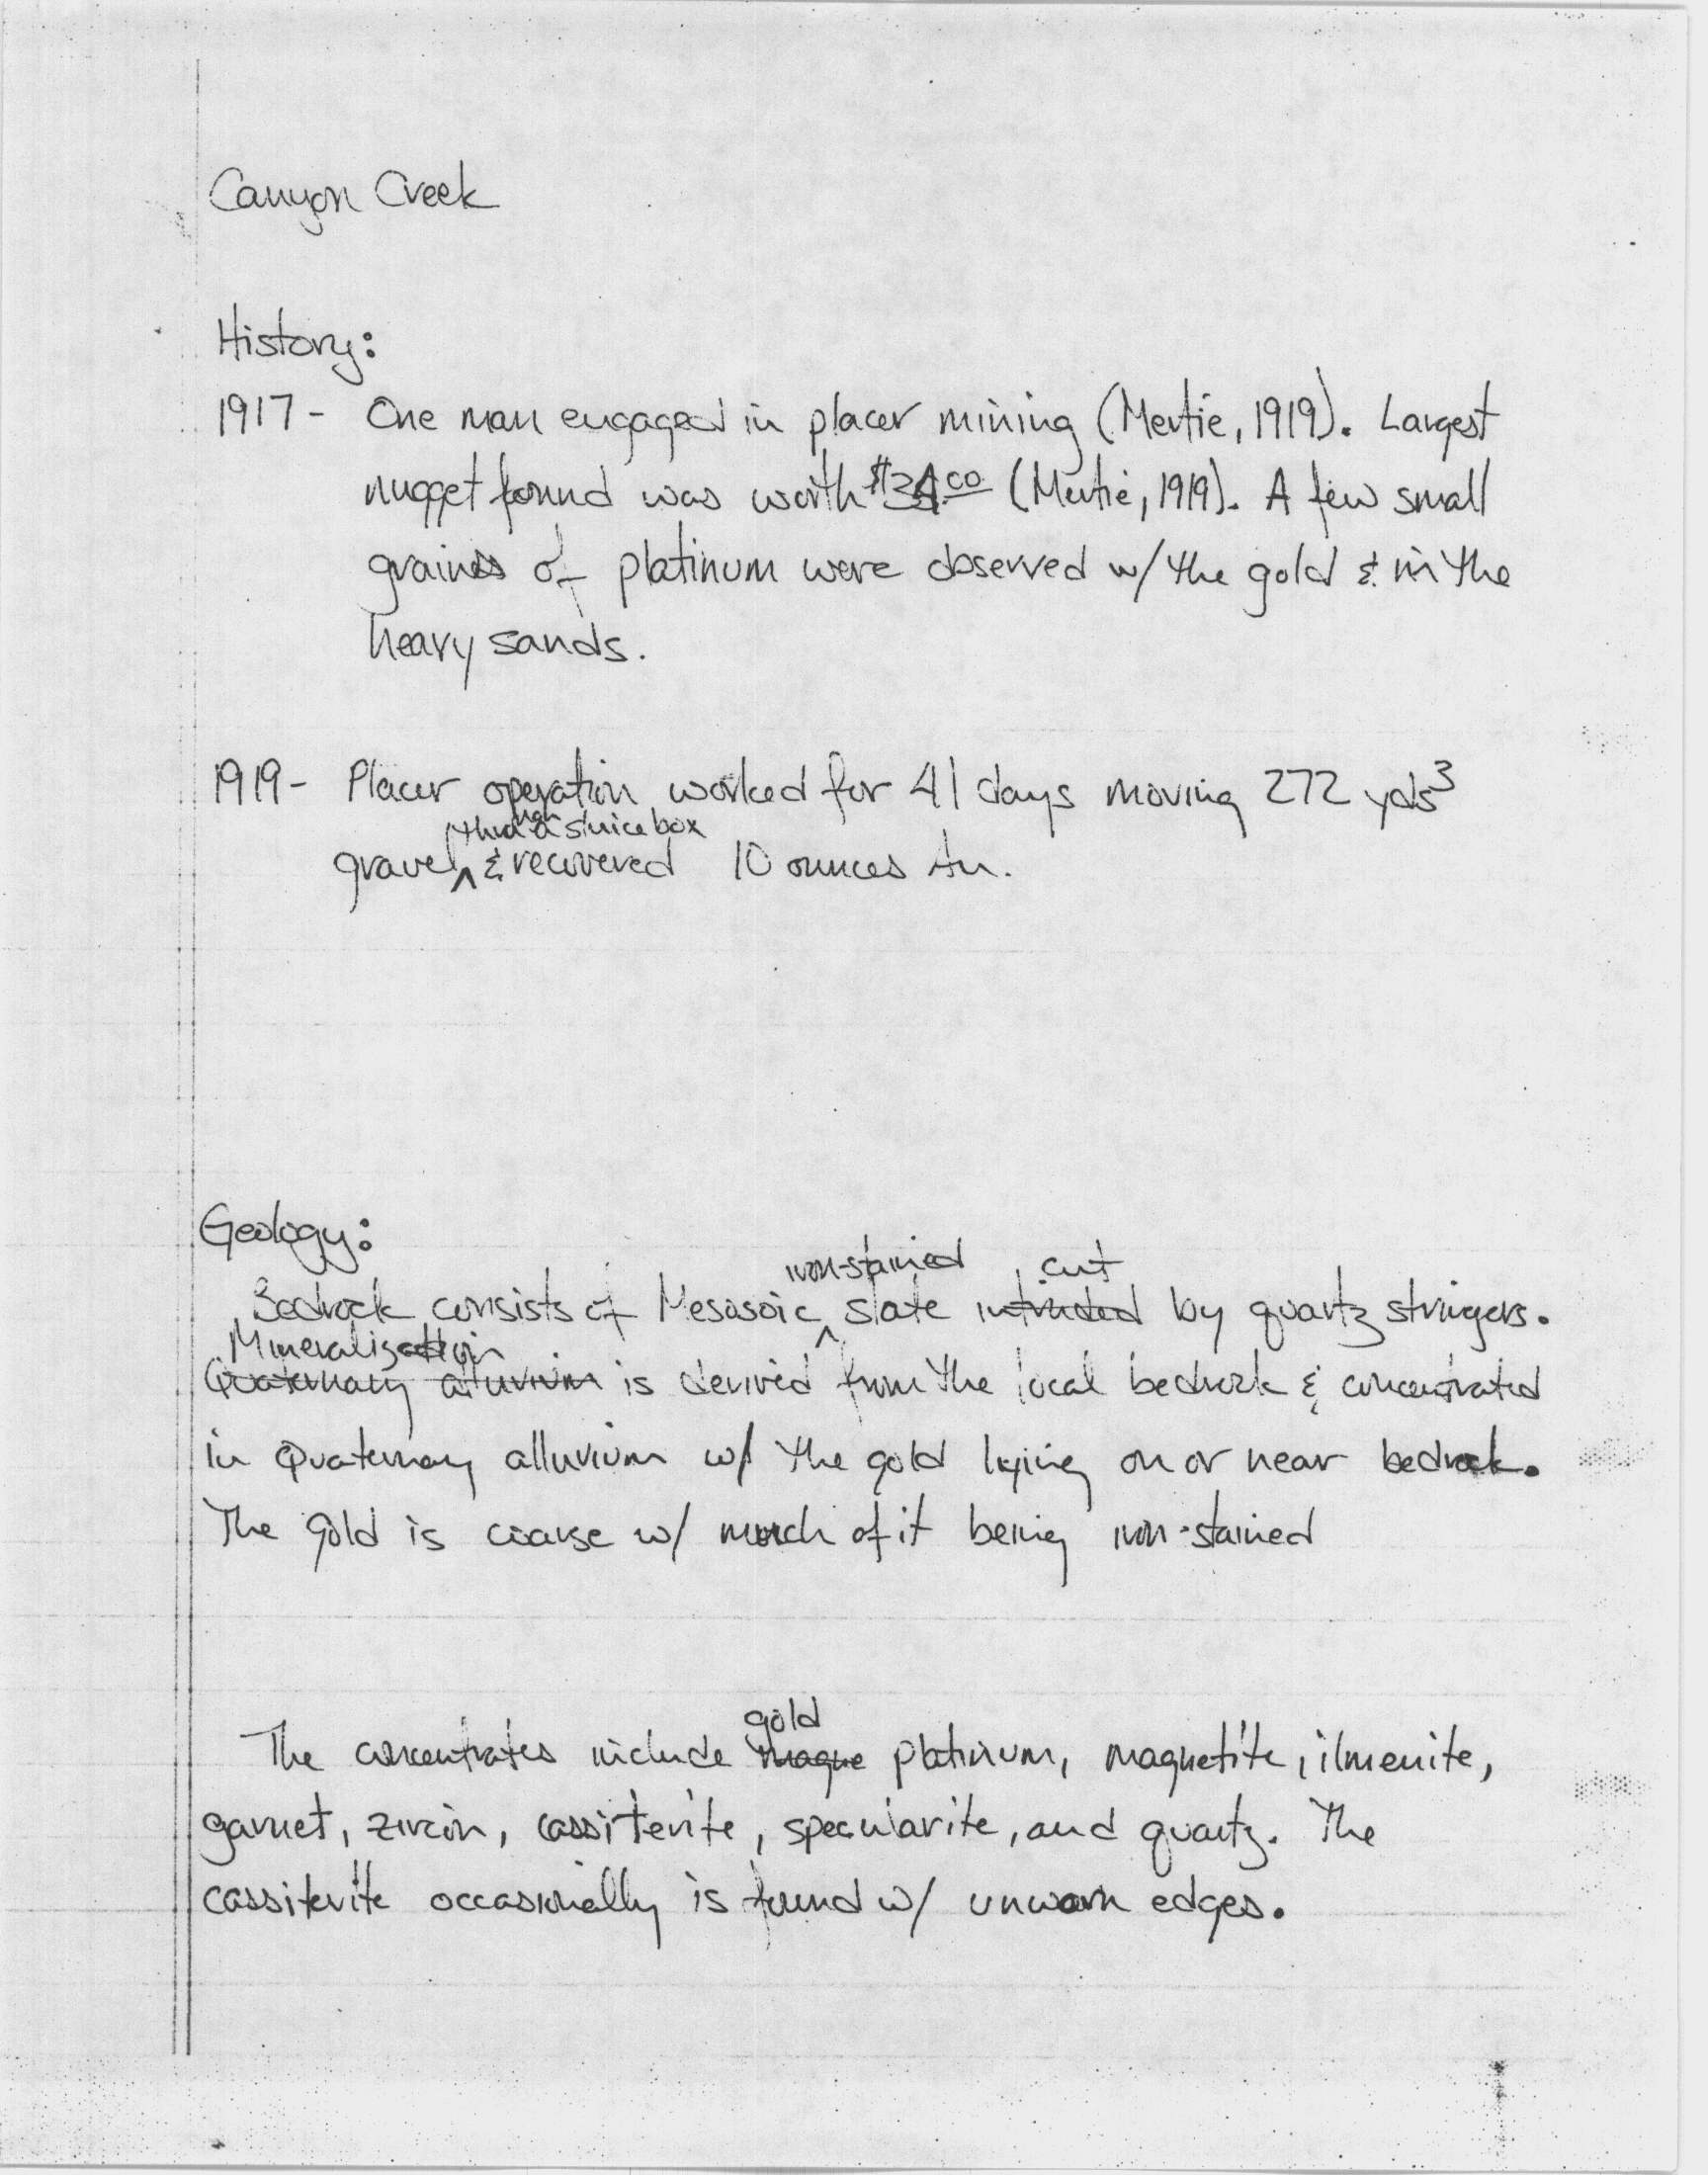 Canyon Creek
History:
1917 - One man engaged in placer mining (Mertie, 1919). Largest
nugget found was worth (Mertie, 1919). A few small
grains of platinum were observed w/ the gold & in the
heavy sands.
1919 - Placer operation worked for 41 days moving 272 yds³
through a sluice box
gravel ^ & recovered 10 ounces Au.
Geology:
iron-stained cut
Bedrock consists of Mesosoic ^ slate intruded by quartz stringers.
Mineralization
Quaternary alluvium is derived from the local bedrock & concentrated
in Quaternary alluvium w/ the gold lying on or near bedrock.
The gold is coarse w/ much of it being iron-stained
gold
The concentrates include magne platinum, magnetite, ilmenite,
garnet, zircon, cassiterite, specularite, and quartz. The
cassiterite occasionally is found w/ unworn edges.